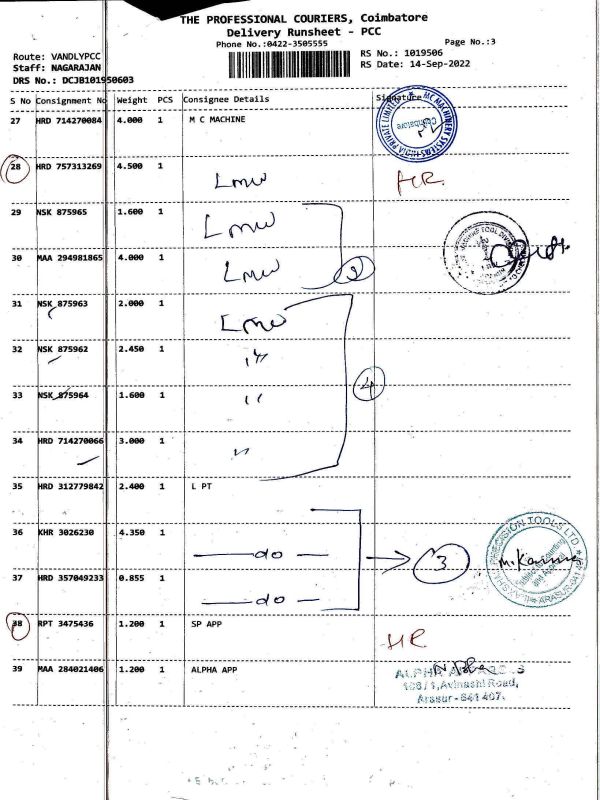 THE PROFESSIONAL COURIERS, Coimbatore
Delivery Runsheet - PCC
Phone No.:0422-3505555
Page No.:3
Route: VANDLYPCC
RS No.: 1019506
Staff: NAGARAJAN
RS Date: 14-Sep-2022
DRS No.: DCJB101950603
S No Consignment No Weight PCS Consignee Details Signature
27 HRD 714270084 4.000 1 M C MACHINE
MC MACHINERY SYSTEMS INDIA PRIVATE LIMITED
Coimbatore
28 HRD 757313269 4.500 1 Lmw HR
29 NSK 875965 1.600 1 Lmw
30 MAA 294981865 4.000 1 Lmw 2
31 NSK 875963 2.000 1 Lmw
32 NSK 875962 2.450 1 "
33 NSK 875964 1.600 1 "
4
34 HRD 714270066 3.000 1 "
35 HRD 312779842 2.400 1 L PT
36 KHR 3026230 4.350 1 do 3
37 HRD 357049233 0.855 1 do
38 RPT 3475436 1.200 1 SP APP HR
39 MAA 284021406 1.200 1 ALPHA APP
108/1, Avinashi Road,
Arasur - 641 407.